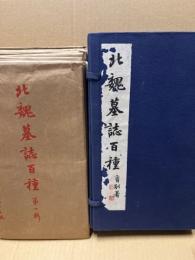 北魏墓誌百種
第一輯
北魏墓誌百種